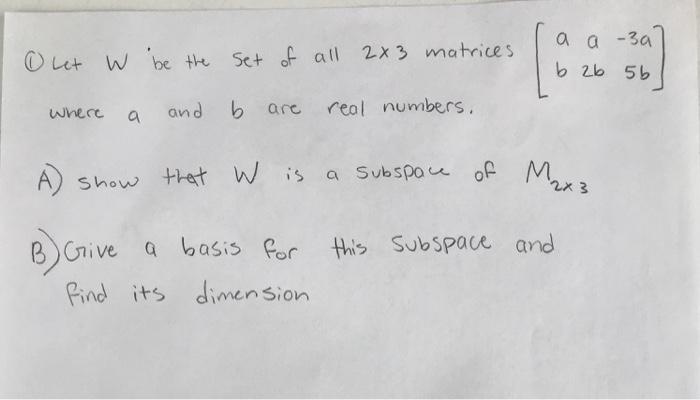 ① Let W be the set of all 2x3 matrices [a a -3a
b 2b 5b]
where a and b are real numbers.
A) Show that W is a subspace of M2x3
B) Give a basis for this subspace and
find its dimension